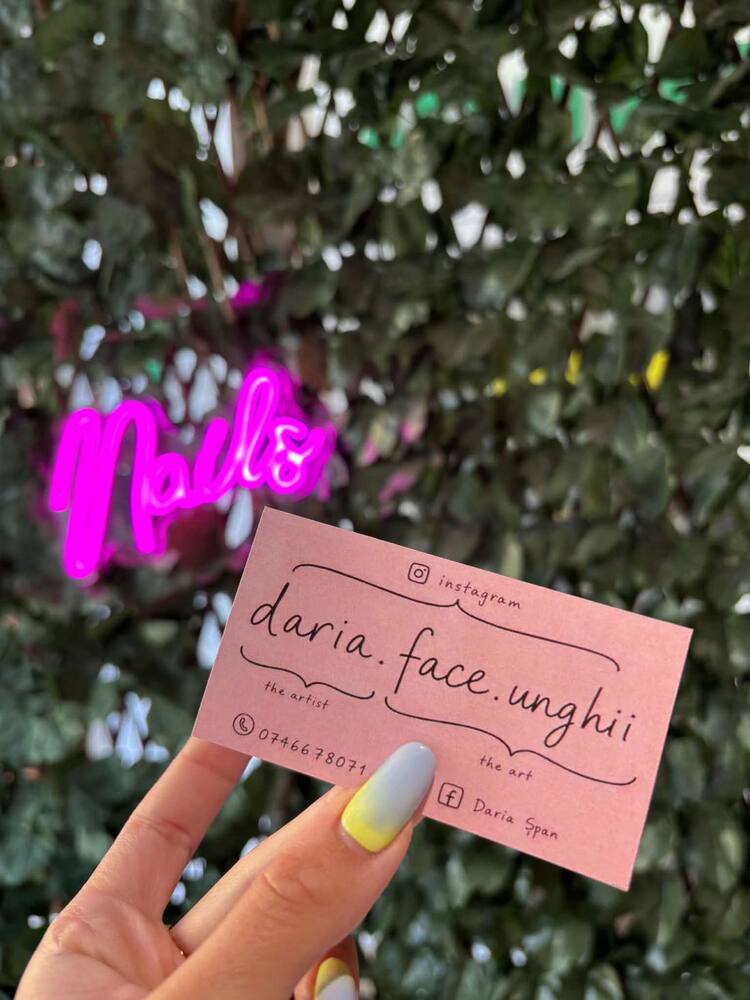 Nails
instagram
daria.face.unghii
the artist
the art
0746678071
Daria Șpan